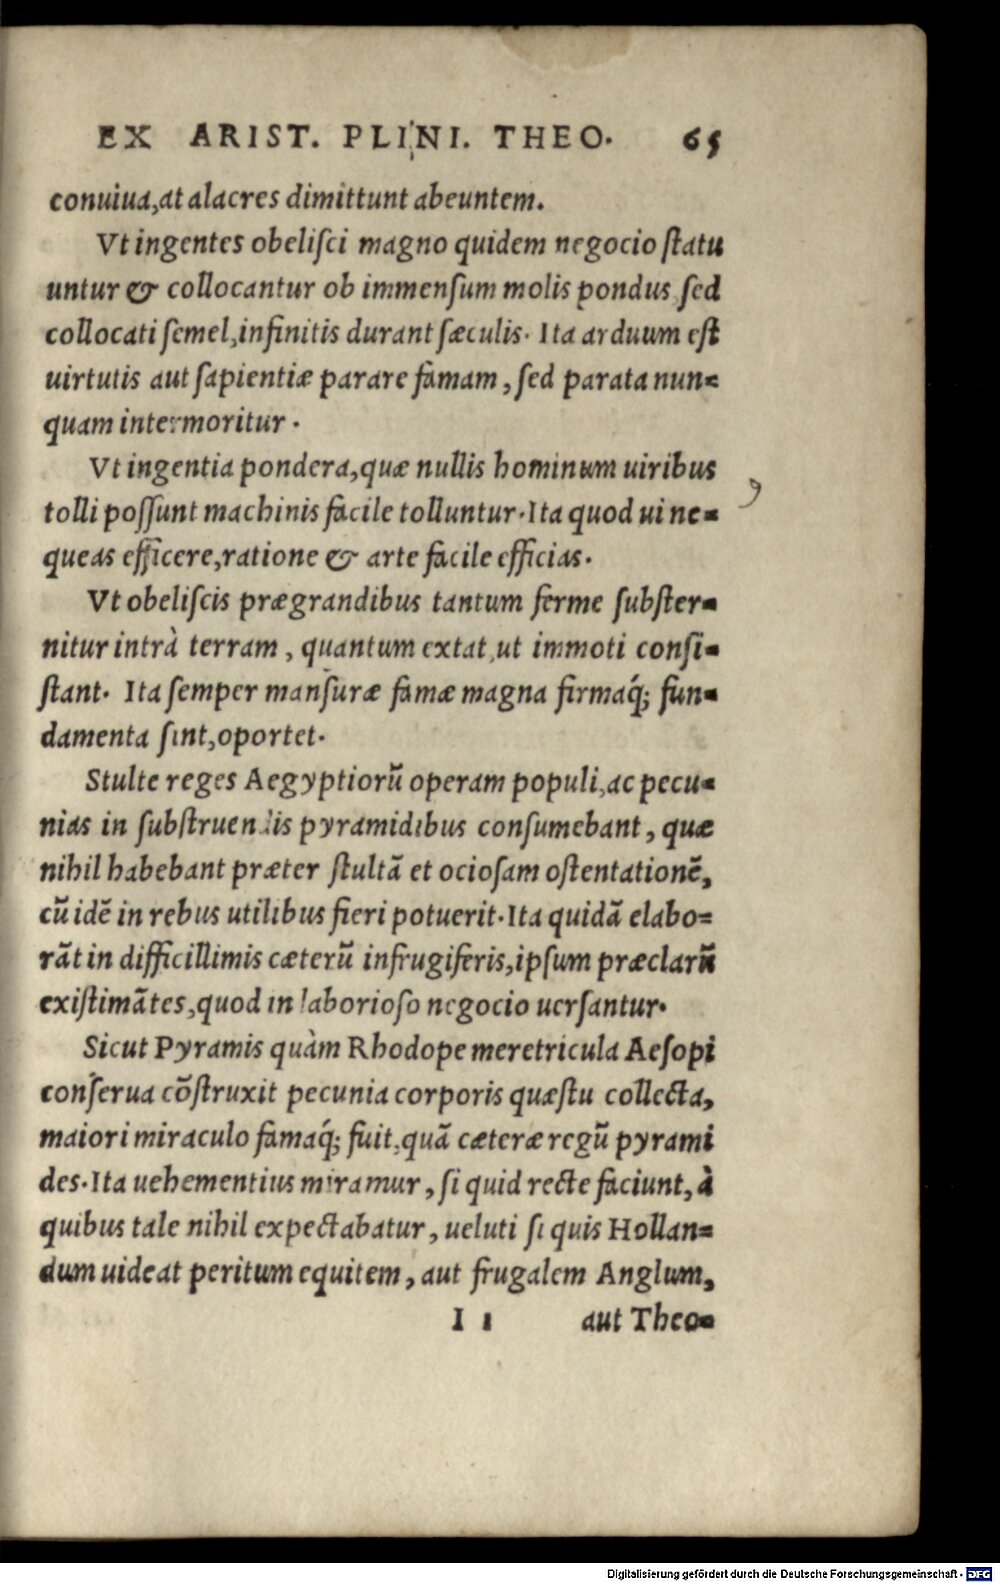 EX ARIST. PLINI. THEO. 65
conuiua, at alacres dimittunt abeuntem.
Vt ingentes obelisci magno quidem negocio statu
untur & collocantur ob immensum molis pondus sed
collocati semel, infinitis durant sæculis. Ita arduum est
uirtutis aut sapientiæ parare famam, sed parata nun=
quam intermoritur.
Vt ingentia pondera, quæ nullis hominum uiribus
tolli possunt machinis facile tolluntur. Ita quod ui ne=
queas efficere, ratione & arte facile efficias.
Vt obeliscis prægrandibus tantum ferme subster=
nitur intrà terram, quantum extat, ut immoti consi=
stant. Ita semper mansuræ famæ magna firmaq́; fun=
damenta sint, oportet.
Stulte reges Aegyptiorũ operam populi, ac pecu=
nias in substruendis pyramidibus consumebant, quæ
nihil habebant præter stultã et ociosam ostentationẽ,
cũ idẽ in rebus utilibus fieri potuerit. Ita quidã elabo=
rãt in difficillimis cæterũ infrugiferis, ipsum præclarũ
existimãtes, quod in laborioso negocio uersantur.
Sicut Pyramis quàm Rhodope meretricula Aesopi
conserua cõstruxit pecunia corporis quæstu collecta,
maiori miraculo famaq́; fuit, quã cæteræ regũ pyrami
des. Ita uehementius miramur, si quid recte faciunt, à
quibus tale nihil expectabatur, ueluti si quis Hollan=
dum uideat peritum equitem, aut frugalem Anglum,
I 1 aut Theo=
Digitalisierung gefördert durch die Deutsche Forschungsgemeinschaft - DFG